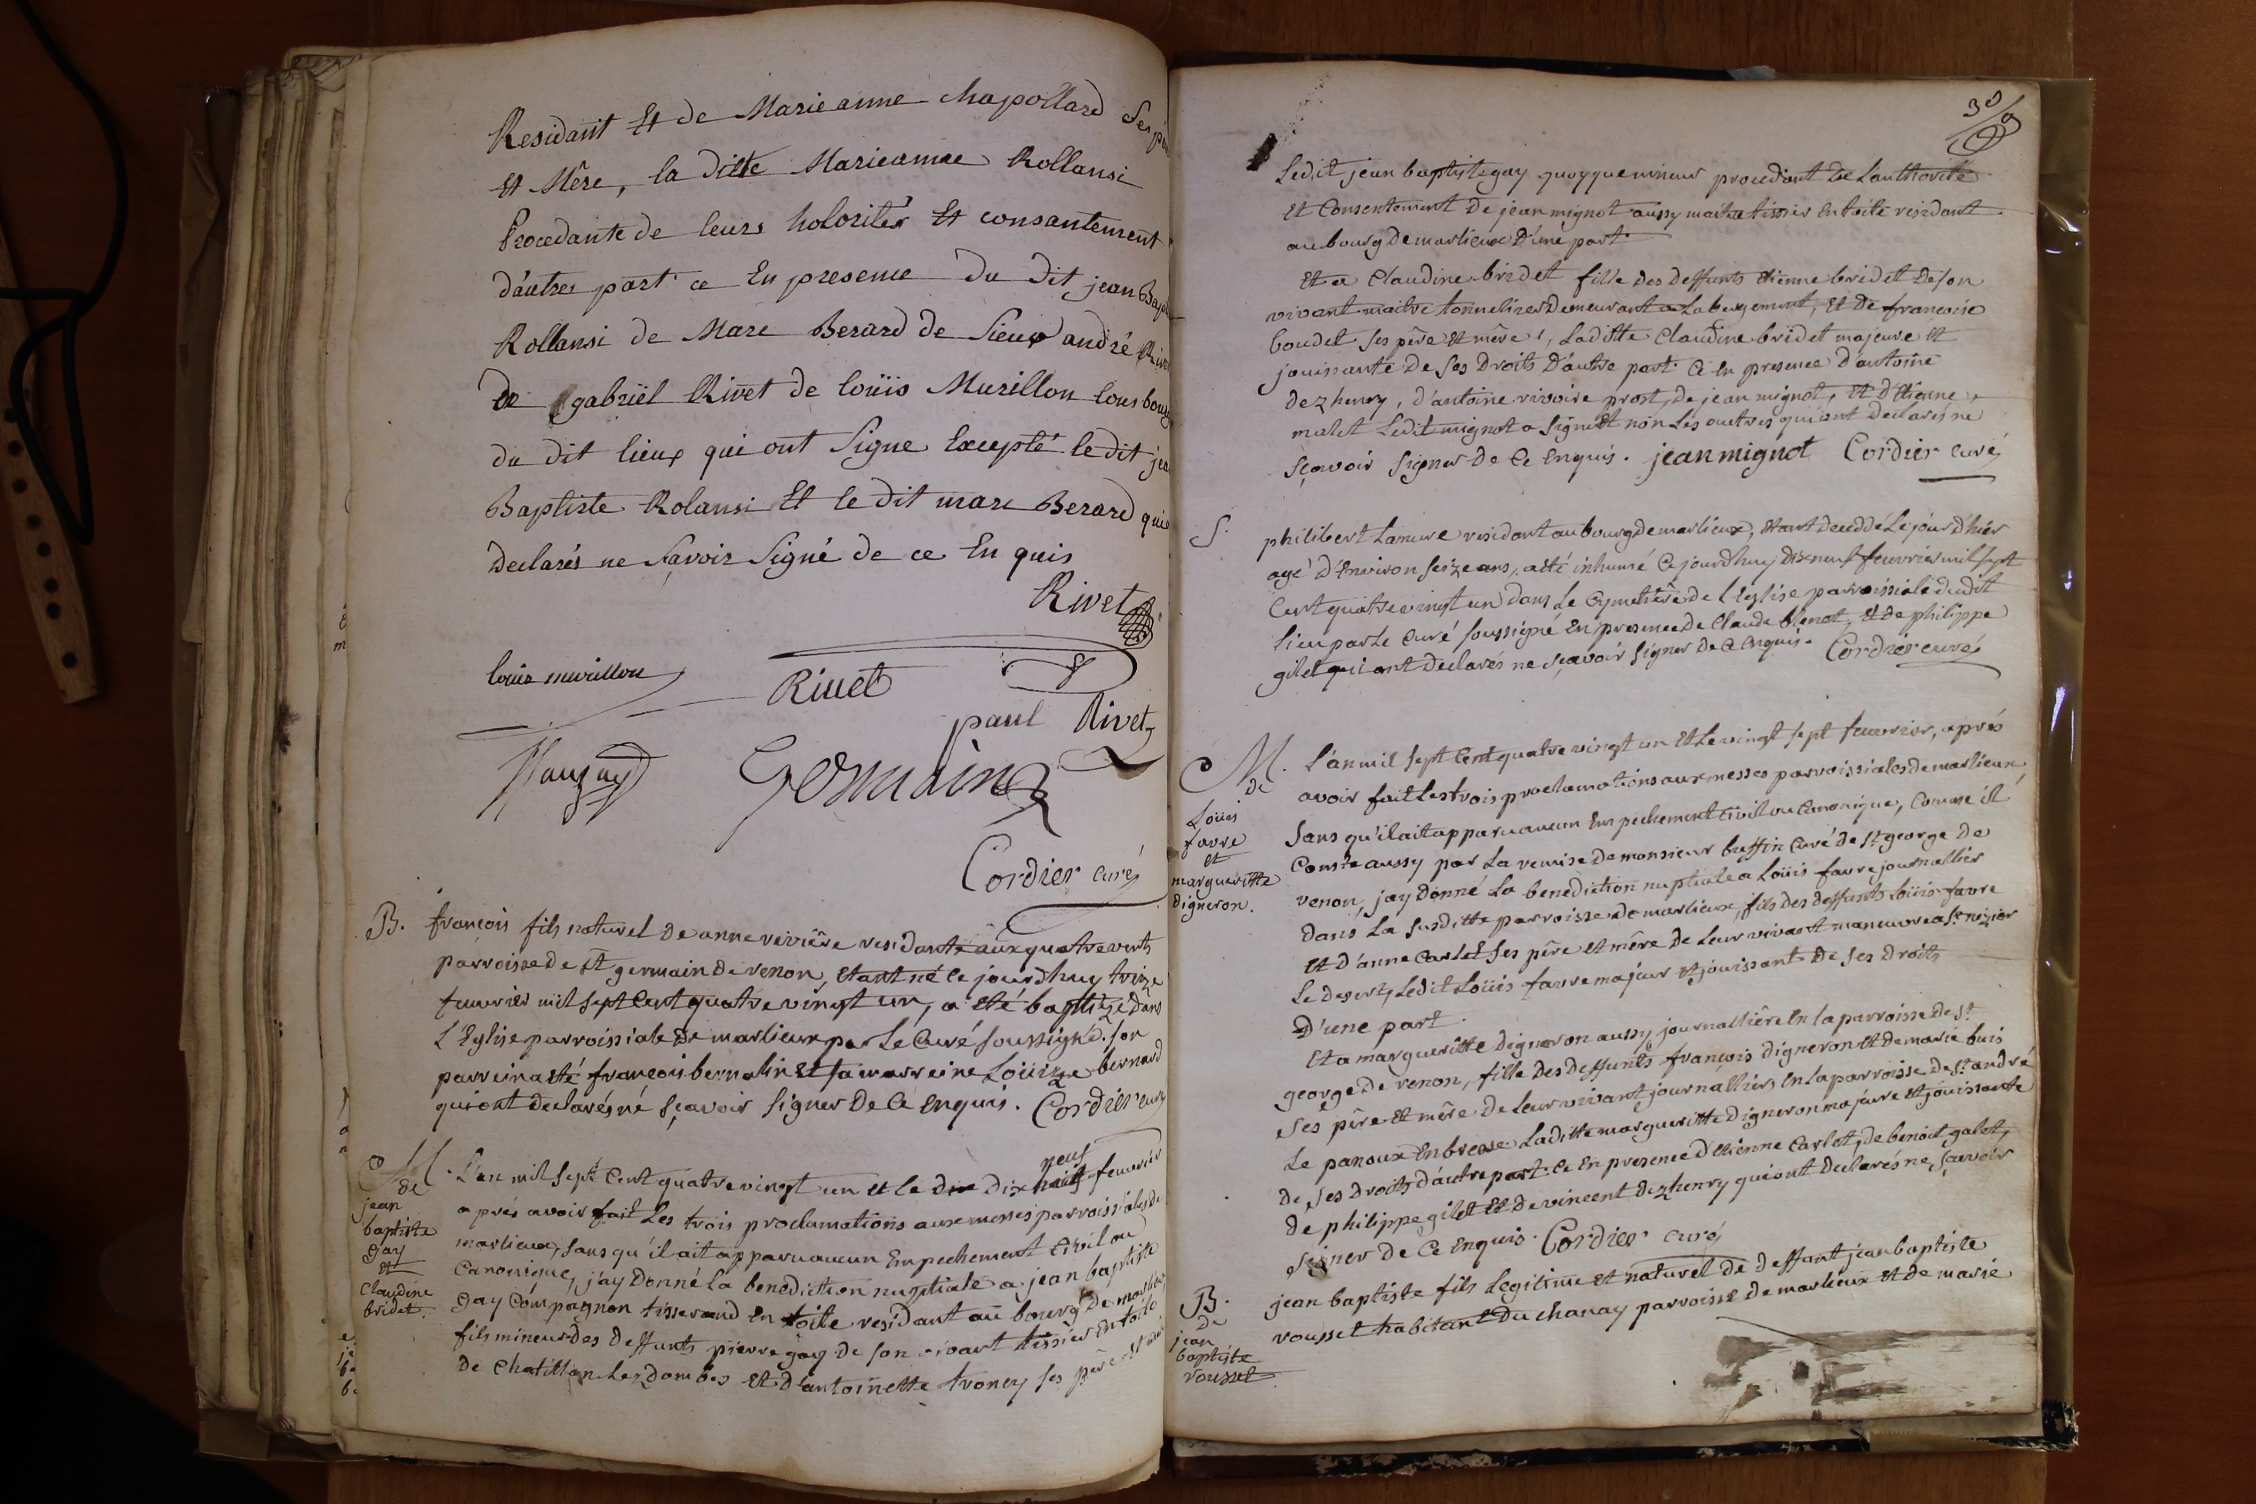 Residant Et de Marieanne chapollard Ses
Et Mêre, la ditte Marieanne Rollansi
Procedante de leurs holorités Et consantement
d'autres part ce En presence du dit jean
Rollansi de Marc Berard de Sieur andré
de gabriël Rivet de loüis Murillon tous
du dit lieux qui ont Signe Excepté le dit
Baptiste Rolansi Et le dit marc Berard
Declarés ne Savoir Signé de ce En quis
Rivet
louis murillon
Rivet
paul Rivet
Germain
Cordier curé
B. françois fils naturel de anne rivière residante aux quatre vents
parroisse de st germain de renon, étant né ce jourdhuy treize
feuvrier mil sept cent quatre vingt un, a été baptizé dans
L'Eglise parroissiale de marlieux par Le Curé soussigné. son
parrein a été françois bernalin et sa marreine Loüize bernard
qui ont declarés né sçavoir signer de ce enquis. Cordier curé
M.
de
jean
baptiste
gay
et
claudine
bridet.
L'an mil sept cent quatre vingt un et le dix neuf feuvrier
après avoir fait Les trois proclamations aux messes parroissiales de
marlieux, sans qu'il ait apparu aucun Empechement civil ou
Canonique, j'ay donné La benediction nuptiale a jean baptiste
gay compagnon tisserand en toile residant au bourg de
fils mineur des deffunts pierre gay de son vivant tissier en toile
de chatillon Les dombes et d'antoinette troncy ses père et
30
Ledit jean baptiste gay quoyque mineur procedant de Lauthorité
et Consentement de jean mignot aussy maitre tissier en toile residant
au bourg de marlieux d'une part
et a Claudine bridet fille des deffunts etienne bridet de son
vivant maitre tonnelier demeurant a Labergement, et de francoise
boudet ses père et mère, Laditte Claudine bridet majeure et
jouissante de ses droits d'autre part. Ce en presence d'antoine
dezhenry, d'antoine rivoire prost, de jean mignot, et d'etienne
malet Ledit mignot a signé et non Les autres qui ont declarés ne
sçavoir signer de ce enquis. jean mignot Cordier curé
S. philibert Lamure residant au bourg de marlieux, étant deceddé Le jour d'hier
agé d'environ seize ans, a été inhumé ce jourdhuy dix neuf feuvrier mil sept
cent quatre vingt un dans Le Cymetière de l'eglise parroissiale dudit
Lieu par Le curé soussigné en presence de Claude blenet, et de philippe
gilet qui ont declarés ne sçavoir signer de ce enquis. Cordier curé
M.
de
Loüis
favre
et
margueritte
digneron.
L'an mil sept cent quatre vingt un et Le vingt sept feuvrier, après
avoir fait Les trois proclamations aux messes parroissiales de marlieux
sans qu'il ait apparu aucun Empechement civil ou Canonique, comme il
Conste aussy par La remise de monsieur buffin curé de st george de
renon, j'ay donné La benediction nuptiale a Loüis favre journallier
dans La susditte parroisse de marlieux, fils des deffunts Loüis favre
et d'anne Carlet ses père et mère de Leur vivant maneuvre a st nizier
Le desert, Ledit Loüis favre majeur et jouissant de ses droits
d'une part.
et a margueritte digneron aussy journallière en la parroisse de st
george de renon, fille des deffunts françois digneron et de marie buis
ses père et mère de Leur vivant journalliers en la parroisse de st andré
Le panoux en bresse Laditte margueritte digneron majeure et jouissante
de ses droits d'autre part. Ce en presence d'etienne Carlet, de benoit galet,
de philippe gilet et de vincent dezhenry qui ont declarés ne sçavoir
signer de ce enquis. Cordier curé
B.
de
jean
baptiste
rousset
jean baptiste fils Legitime et naturel de deffunt jean baptiste
rousset habitant du chanay parroisse de marlieux et de marie